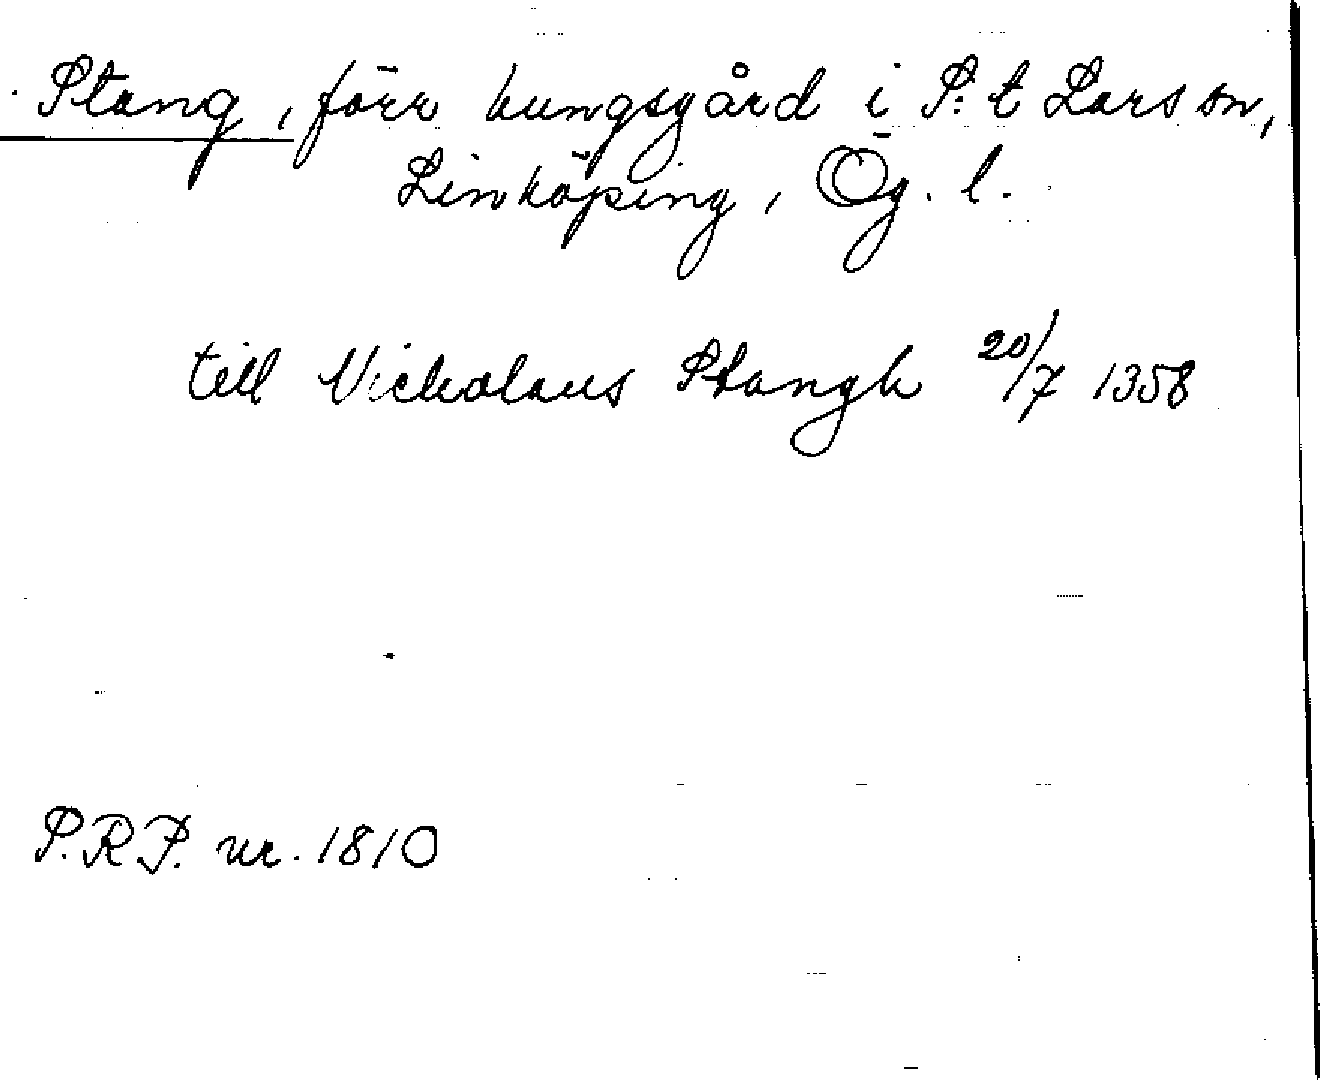 Stang, förr kungsgård i S:t Lars sn,
Linköping, Ög. l.
till Nickolaus Stangh 20/7 1358
S.R.P. nr. 1810